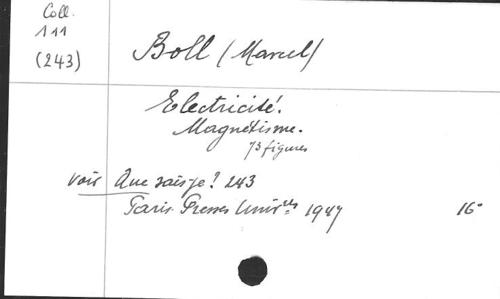 Coll.
111
(243)
Boll (Marcel)
Electricité.
Magnétisme.
73 figures
voir Que sais-je? 243
Paris Presses Univ.res 1947 16°